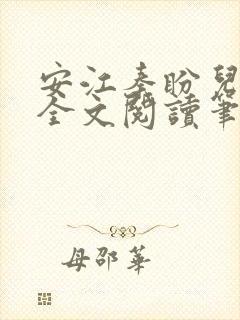 安江秦盼兒
全文閱讀筆
母邵華